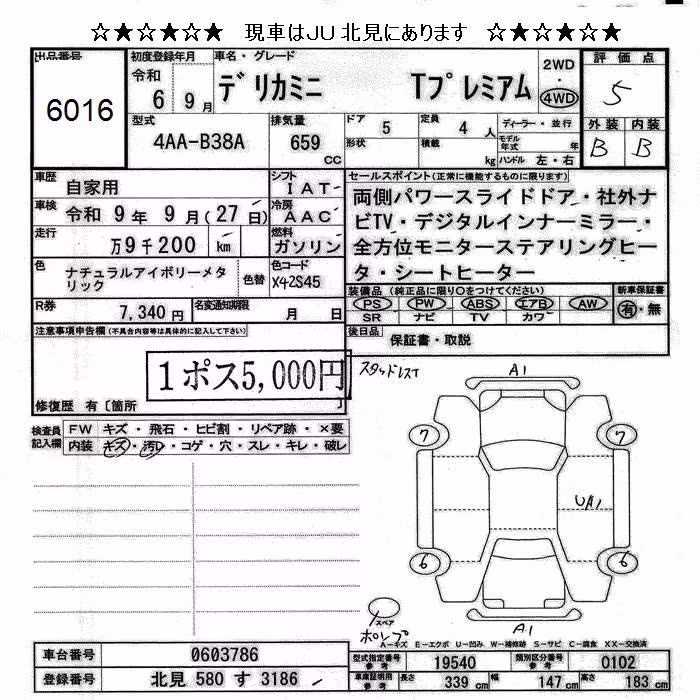 ☆★☆★☆★　現車はJU北見にあります　☆★☆★☆★
出品番号
6016
初度登録年月
令和
6 9 月
車名・グレード
デリカミニ Tプレミアム
2WD
・
4WD
評価点
5
外装 内装
B B
型式
4AA-B38A
排気量
659
CC
ドア 5
形状
定員 4 人
積載 kg
ディーラー・並行
モデル年式 年
ハンドル 左・右
車歴 自家用
シフト
IAT
車検 令和 9年 9月(27日)
冷房
AAC
走行 万9千200 km
燃料
ガソリン
色 ナチュラルアイボリーメタリック
色替
色コード
X42S45
R券 7,340 円
名変通知期限 月 日
セールスポイント(正常に機能するものに限ります)
両側パワースライドドア・社外ナ
ビTV・デジタルインナーミラー・
全方位モニターステアリングヒー
タ・シートヒーター
装備品 (純正品に限り○をつけてください)
PS PW ABS エアB AW
SR ナビ TV カワ
新車保証書
有・無
後日品
保証書・取説
注意事項申告欄(不具合内容等は具体的に記入して下さい)
1ポス5,000円
修復歴 有〔箇所 〕
検査員
記入欄
FW キズ・飛石・ヒビ割・リペア跡・×要
内装 キズ・汚レ・コゲ・穴・スレ・キレ・破レ
スタッドレスT
A1
7 7
UA1
6 6
スペア
ポンプ
A1
A－キズ E－エクボ U－凹み W－補修跡 S－サビ C－腐食 XX－交換済
車台番号 0603786
登録番号 北見 580 す 3186
型式指定番号
参考
19540
類別区分番号
参考
0102
車庫証明用
参考
長さ 339 cm
幅 147 cm
高さ 183 cm